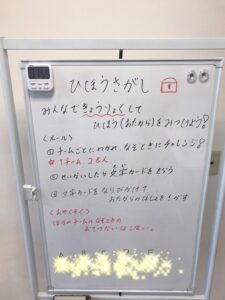 ひほうさがし
みんなできょうりょくして
ひほう(おたから)をみつけよう!
<ルール>
① チームごとにわかれ、なぞときにチャレンジ!
1チーム 2名
② せいかいしたら文字カードをもらう
③ 文字カードをならびかえて
おたからのばしょをさがす
<おやくそく>
ほかのチームのなぞときの
おてつだいはしない。